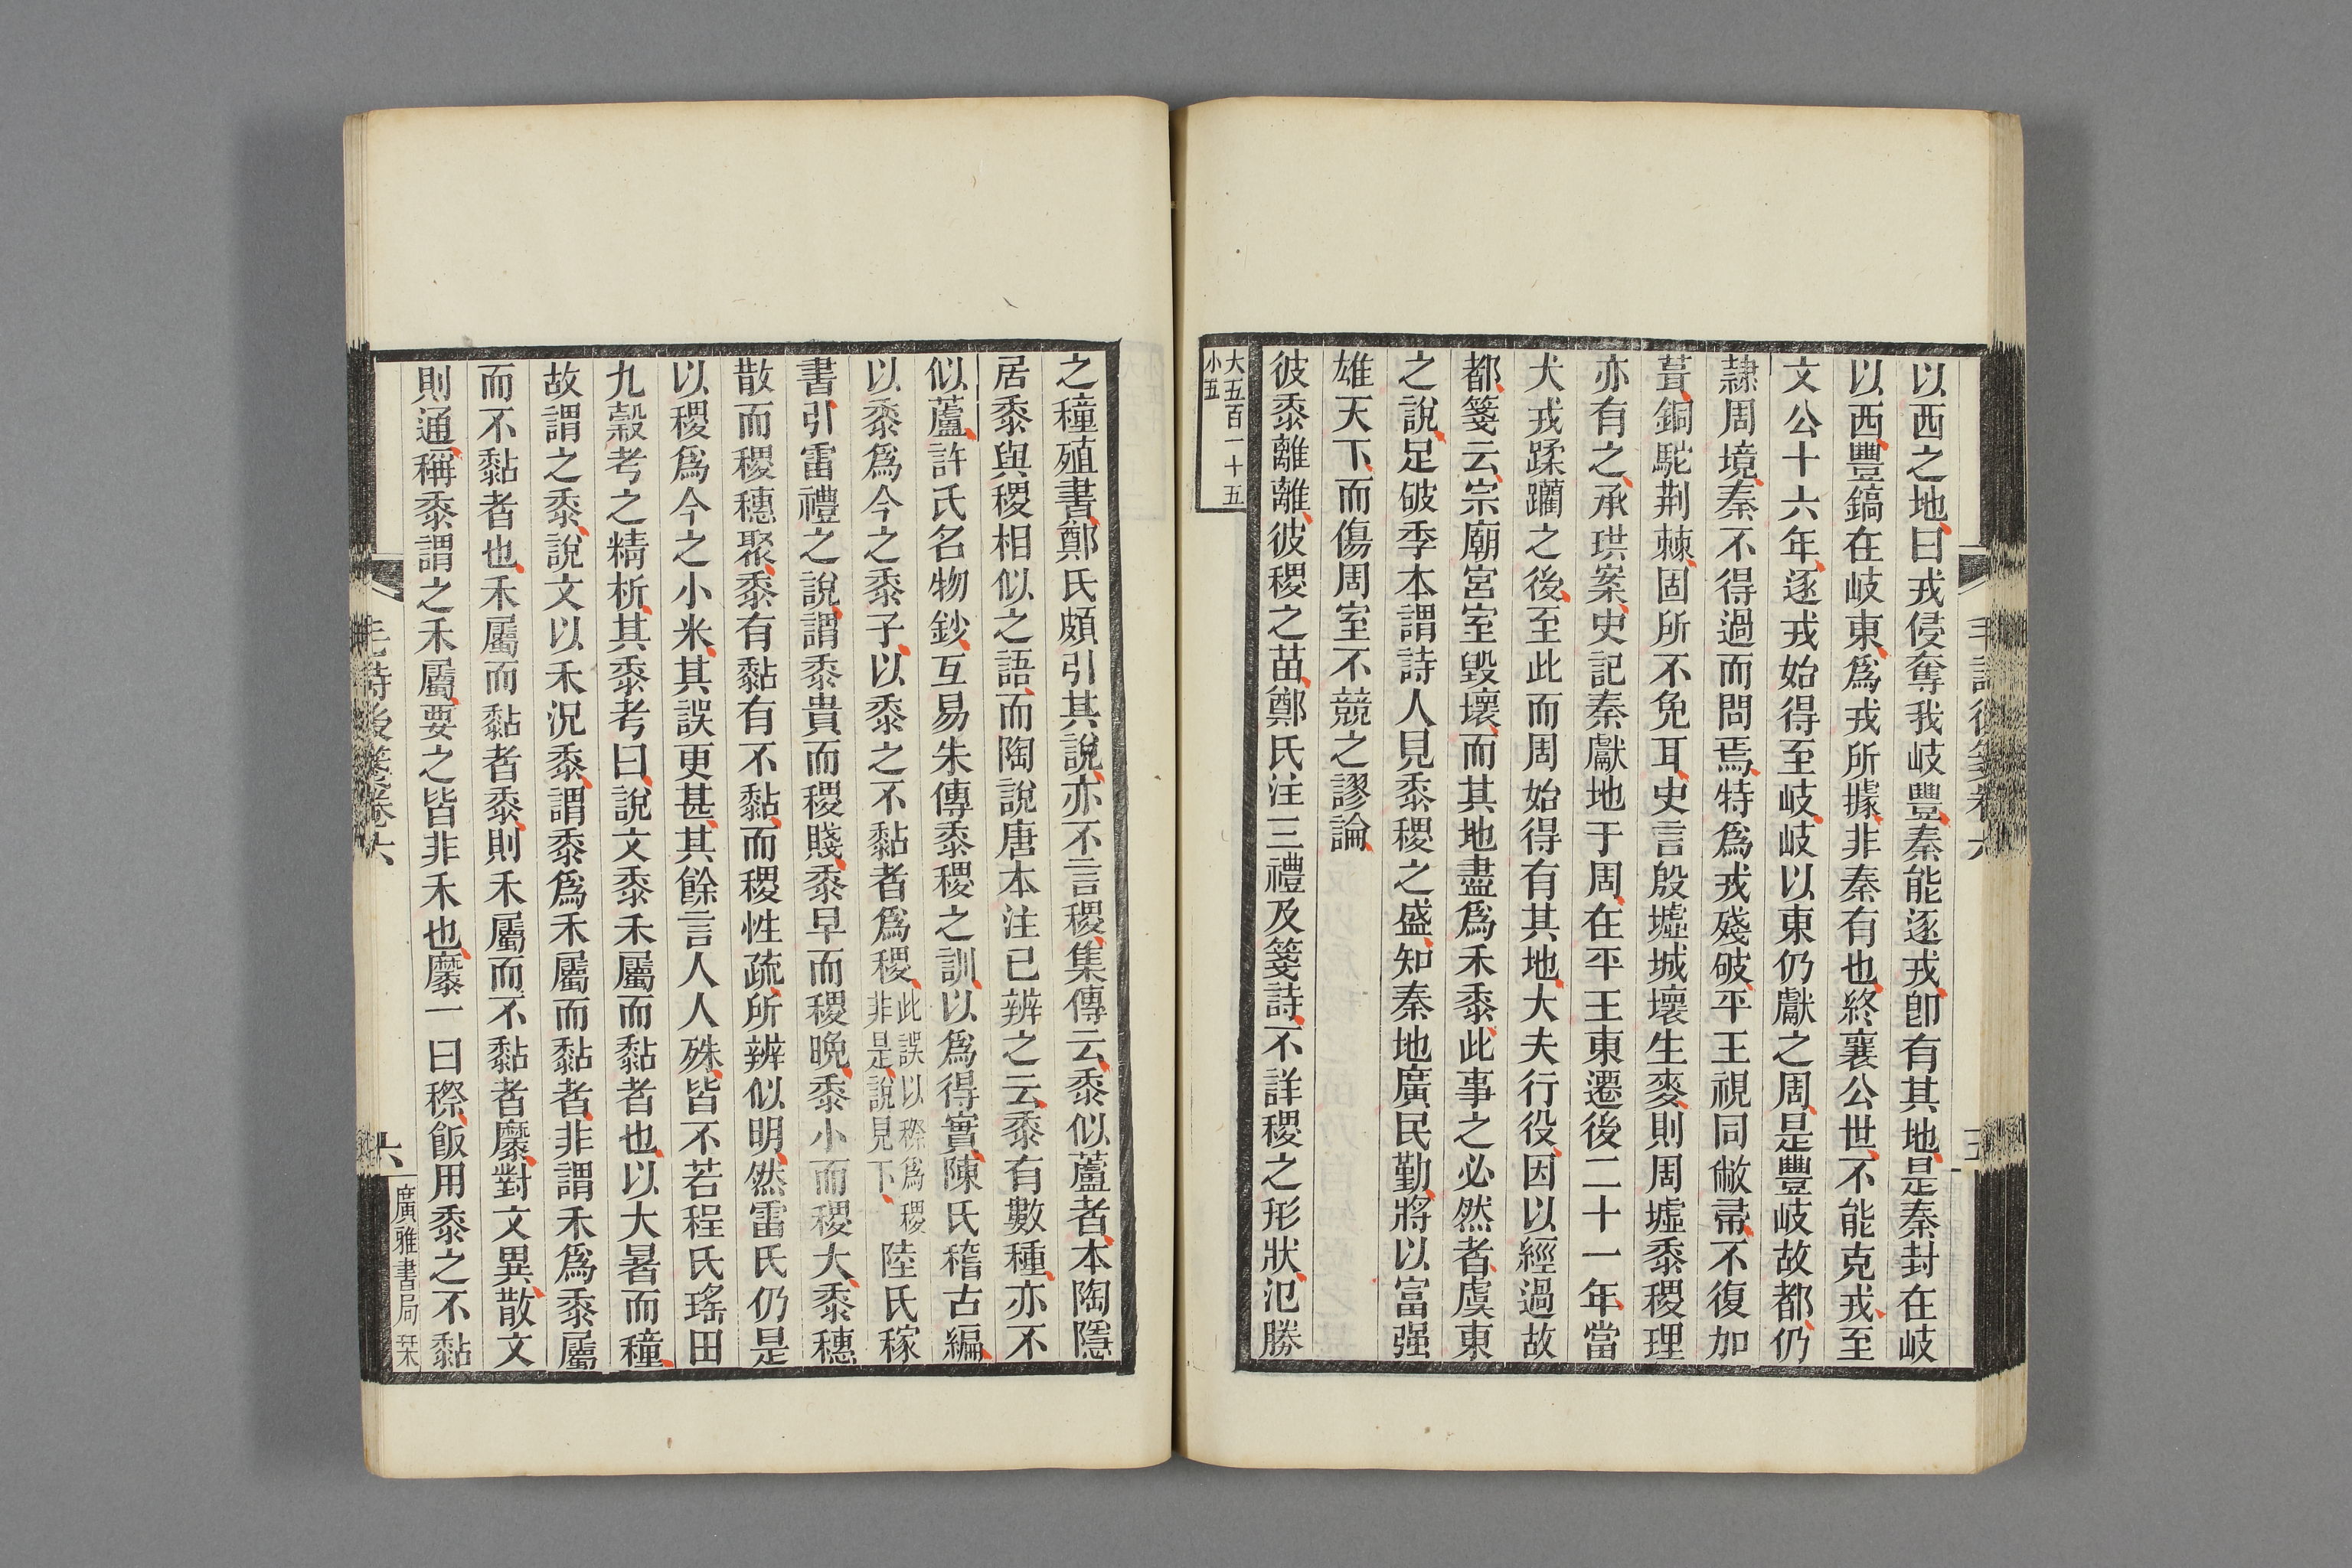 以西之地曰戎侵奪我岐豐秦能逐戎卽有其地是秦封在岐
以西豐鎬在岐東爲戎所據非秦有也終襄公世不能克戎至
文公十六年逐戎始得至岐岐以東仍獻之周是豐岐故都仍
隷周境秦不得過而問焉特爲戎殘破平王視同敝帚不復加
葺銅駝荆棘固所不免耳史言殷墟城壞生麥則周墟黍稷理
亦有之承珙案史記秦獻地于周在平王東遷後二十一年當
犬戎蹂躪之後至此而周始得有其地大夫行役因以經過故
都箋云宗廟宮室毀壞而其地盡爲禾黍此事之必然者虞東
之說足破季本謂詩人見黍稷之盛知秦地廣民勤將以富强
雄天下而傷周室不競之謬論
彼黍離離彼稷之苗鄭氏注三禮及箋詩不詳稷之形狀氾勝
大五百一十五
小五
之穜殖書鄭氏頗引其說亦不言稷集傳云黍似蘆者本陶隱
居黍與稷相似之語而陶說唐本注已辨之云黍有數種亦不
似蘆許氏名物鈔互易朱傳黍稷之訓以爲得實陳氏稽古編
以黍爲今之黍子以黍之不黏者爲稷此誤以穄爲稷非是說見下陸氏稼
書引雷禮之說謂黍貴而稷賤黍早而稷晚黍小而稷大黍穗
散而稷穗聚黍有黏有不黏而稷性疏所辨似明然雷氏仍是
以稷爲今之小米其誤更甚其餘言人人殊皆不若程氏瑤田
九穀考之精析其黍考曰說文黍禾屬而黏者也以大暑而穜
故謂之黍說文以禾況黍謂黍爲禾屬而黏者非謂禾爲黍屬
而不黏者也禾屬而黏者黍則禾屬而不黏者䵚對文異散文
則通稱黍謂之禾屬要之皆非禾也䵚一曰穄飯用黍之不黏
毛詩後箋卷六
六
廣雅書局栞